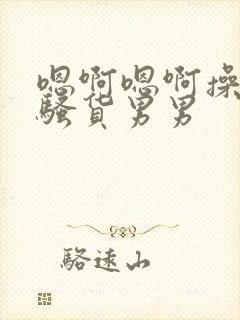 嗯啊嗯啊操
骚货男男
骆遠山